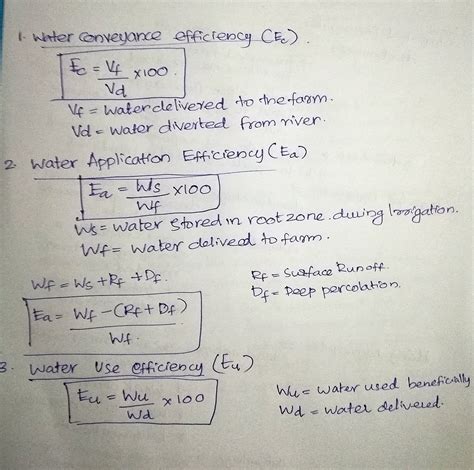 1. Water Conveyance efficiency (Ec).
Ec = Vf/Vd ×100.
Vf = Water delivered to the farm.
Vd = Water diverted from river.
2. Water Application Efficiency (Ea)
Ea = Ws/Wf ×100
Ws = Water stored in root zone. during Irrigation.
Wf = Water deliveed to farm.
Wf = Ws + Rf + Df.
Rf = Surface Runoff.
Df = Deep percolation.
Ea = Wf-(Rf+Df)/Wf.
3. Water Use efficiency (Eu)
Eu = Wu/Wd × 100
Wu = Water used beneficially
Wd = Water delivered.